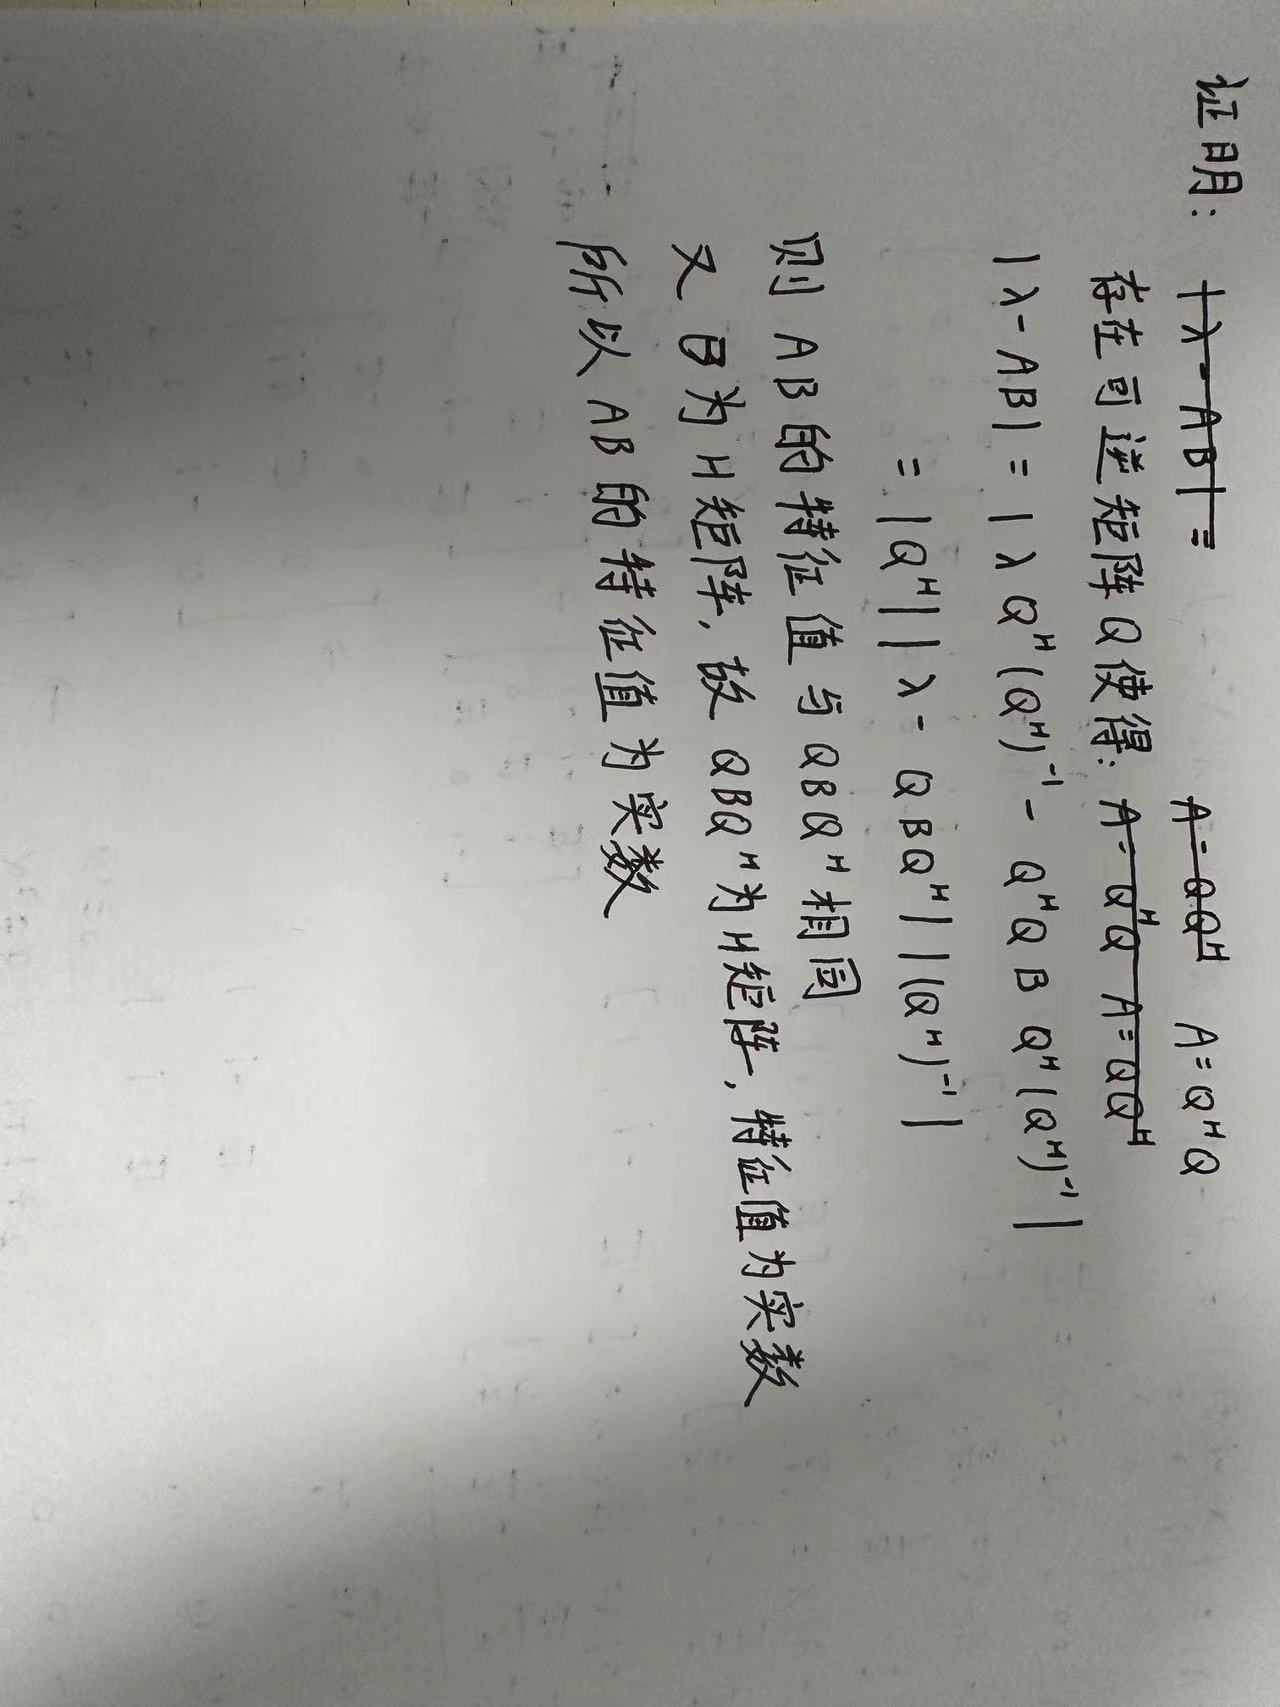 证明: |λ-AB|= A=QQᴴ A=QᴴQ
存在可逆矩阵Q使得: A=QᴴQ A=QQᴴ
|λ-AB|=|λQᴴ(Qᴴ)⁻¹-QᴴQBQᴴ(Qᴴ)⁻¹|
=|Qᴴ||λ-QBQᴴ||(Qᴴ)⁻¹|
则AB的特征值与QBQᴴ相同
又B为H矩阵,故QBQᴴ为H矩阵,特征值为实数
所以AB的特征值为实数